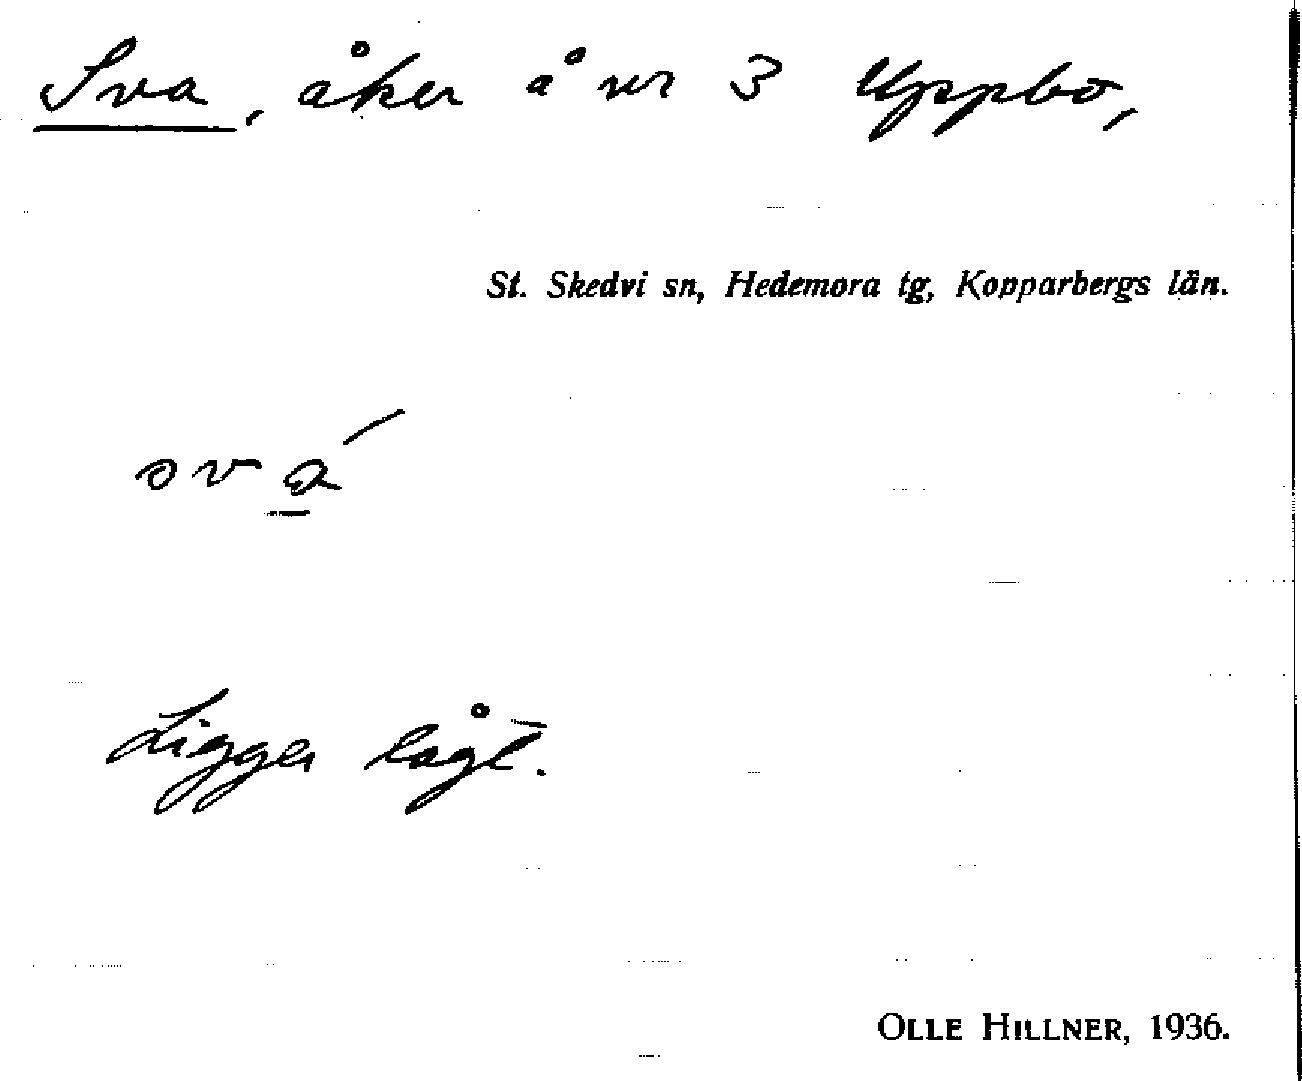 Sva, åker å nr 3 Uppbo,
St. Skedvi sn, Hedemora tg, Kopparbergs län.
Ligger lågt.
OLLE HILLNER, 1936.